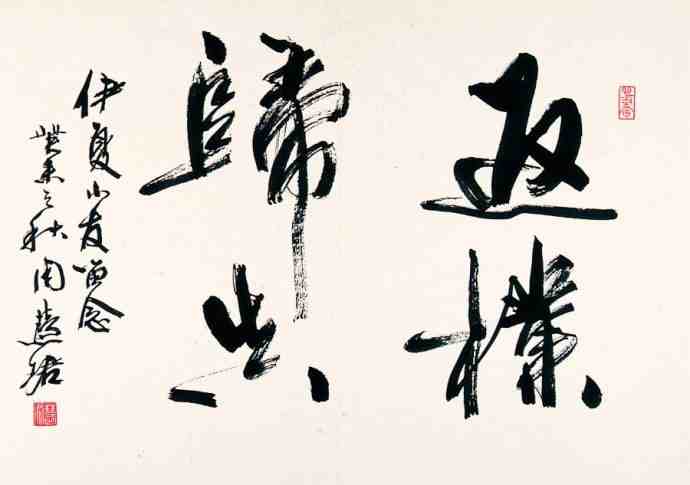 返樸
歸真
伊夏小友留念
癸未之秋周慧珺